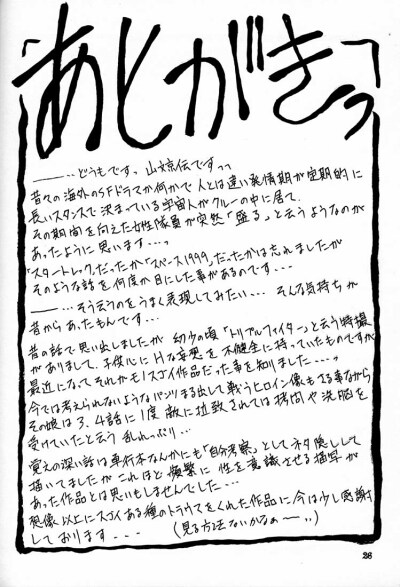 あとがきっ
———…どうもです。山文京伝ですっっ
昔々の海外のSFドラマか何かで人とは違い発情期が定期的に
長いスタンスで決まっている宇宙人がクルーの中に居て、
その期間を向えた女性隊員が突然「盛る」と云うようなのが
あったように思います…っ
「スタートレック」だったか「スペース1999」だったかは忘れましたが
そのような話を何度か目にした事があるのです…
———…そう云うのをうまく表現してみたい…そんな気持ちが
昔から、あったもんです…
昔の話で思い出しましたが幼少の頃「トリプルファイター」と云う特撮
がありまして、子供心にHな妄想を不健全に持っていたものですが
最近になってそれがもノスゴイ作品だった事を知りました…っ
今では考えられないようなパンツまる出して戦うヒロイン像もさる事ながら
その娘は3、4話に1度敵に拉致されては拷問や洗脳を
受けていたと云う乱れっぷり…
覚えの深い話は単行本なんかにも「自分考察」としてネタ隠しして
描いてましたがこれほど頻繁に性を意識させる描写が
あった作品とは思いもしませんでした…
想像以上にスゴイある種のトラウマをくれた作品に、今は少し感謝
しております…（見る方法ないかなぁー…）
26